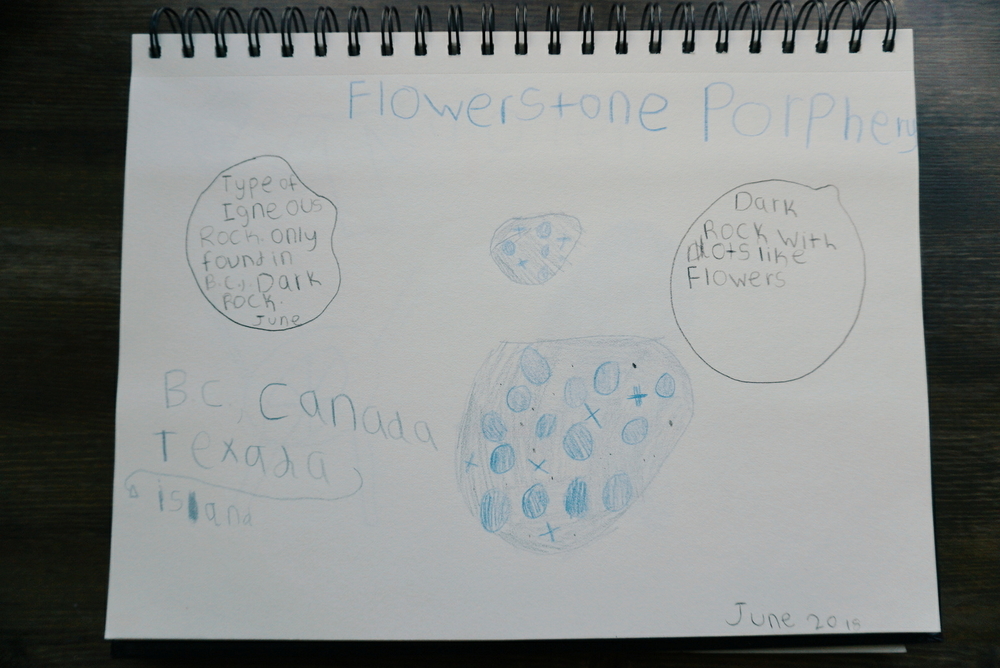 Flowerstone Porphery
Type of
Igneous
Rock. only
found in
B.C., Dark
Rock.
June
Dark
Rock with
lots like
Flowers
B.C., Canada
Texada
island
June 2018